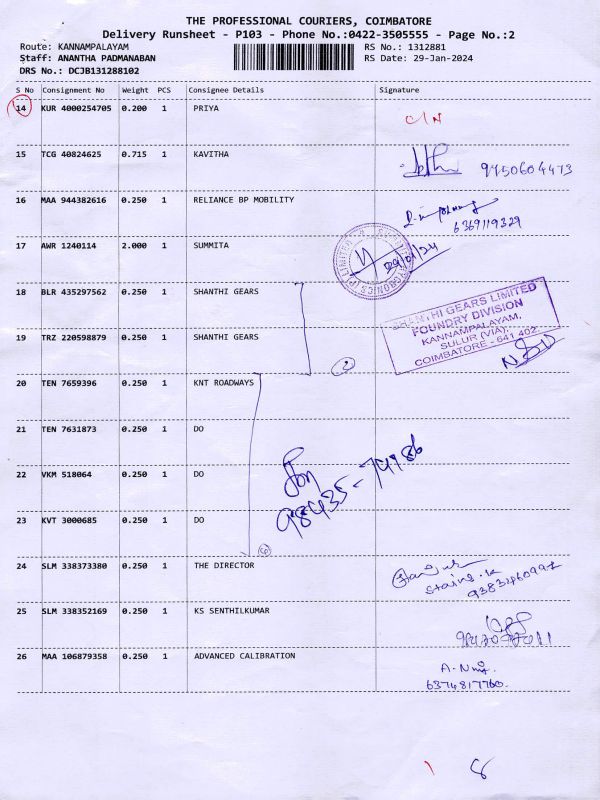 THE PROFESSIONAL COURIERS, COIMBATORE
Delivery Runsheet - P103 - Phone No.:0422-3505555 - Page No.:2
Route: KANNAMPALAYAM RS No.: 1312881
Staff: ANANTHA PADMANABAN RS Date: 29-Jan-2024
DRS No.: DCJB131288102
S No Consignment No Weight PCS Consignee Details Signature
14 KUR 4000254705 0.200 1 PRIYA C/N
15 TCG 40824625 0.715 1 KAVITHA 9750604473
16 MAA 944382616 0.250 1 RELIANCE BP MOBILITY
6369119329
17 AWR 1240114 2.000 1 SUMMITA 29/01/24
18 BLR 435297562 0.250 1 SHANTHI GEARS
SHANTHI GEARS LIMITED
FOUNDRY DIVISION
KANNAMPALAYAM,
SULUR (VIA),
COIMBATORE - 641 402.
19 TRZ 220598879 0.250 1 SHANTHI GEARS
2
20 TEN 7659396 0.250 1 KNT ROADWAYS
21 TEN 7631873 0.250 1 DO
22 VKM 518064 0.250 1 DO
98435-74986
23 KVT 3000685 0.250 1 DO
24 SLM 338373380 0.250 1 THE DIRECTOR
25 SLM 338352169 0.250 1 KS SENTHILKUMAR
26 MAA 106879358 0.250 1 ADVANCED CALIBRATION
6374817760.
1 8